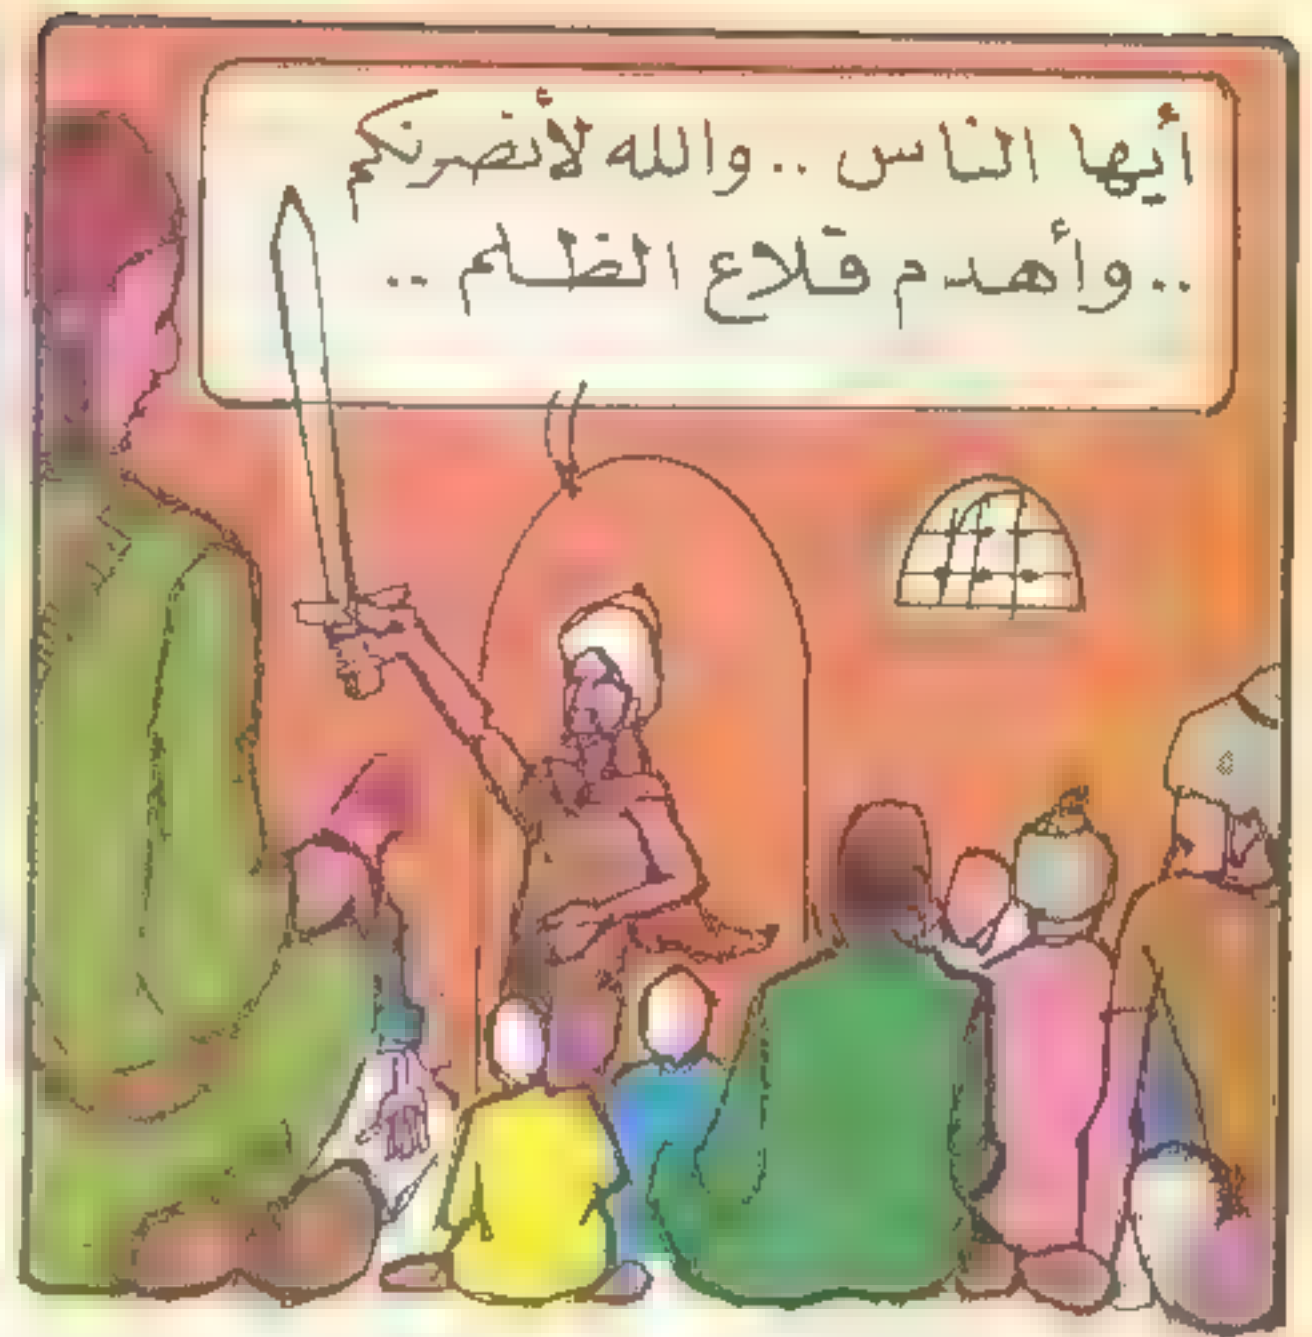 أيها الناس .. والله لأنصرنكم
.. وأهدم قلاع الظلم ..